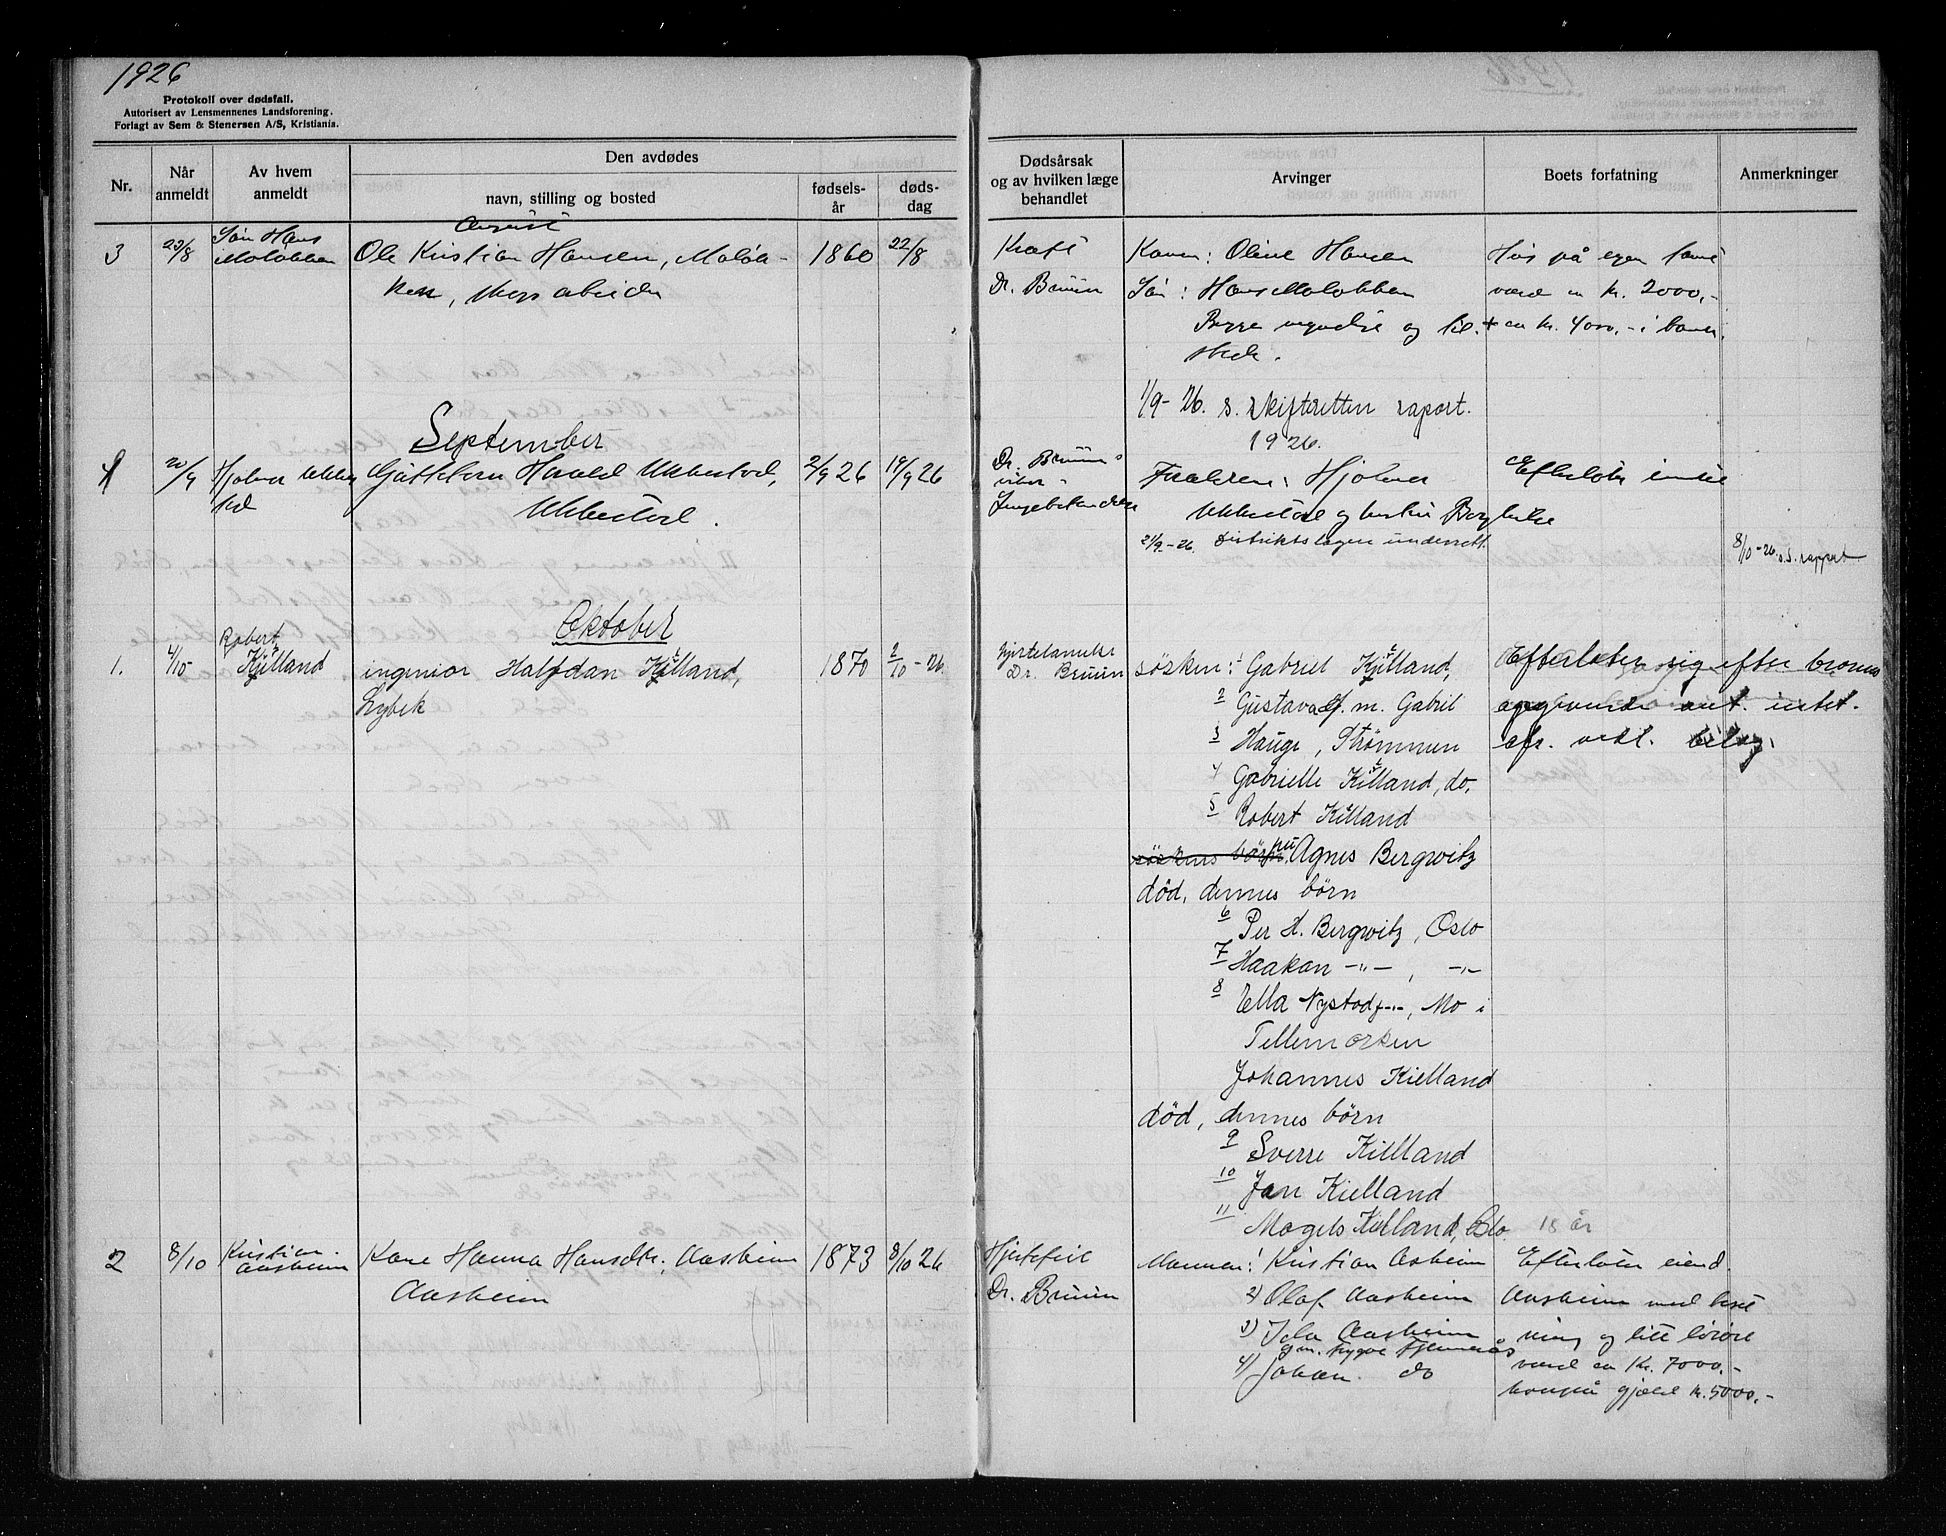 1926
Protokoll over dødsfall.
Autorisert av Lensmennenes Landsforening.
Forlagt av Sem & Stenersen A/S, Kristiania.
Nr.
Når anmeldt
Av hvem anmeldt
Den avdødes
navn, stilling og bosted
fødsels-år
døds-dag
Dødsårsak og av hvilken læge behandlet
Arvinger
Boets forfatning
Anmerkninger
August
3
23/8
Søn Hans
Moløkken
Ole Kristian Hansen, Moløk-
ken,
1860
22/8
Kræft
Dr. Bruun
Konen: Oline Hansen
Søn: Hans Moløkken
Begge myndige og til.
stede.
Hus på egen tomt
værd ca kr. 2000,-
+ ca kr. 4000,- i
1/9-26. s. skifteretten raport.
1926.
September
20/9
Hjalmar
Harald Ukkestad,
Ukkestad.
2/9 26
19/9 26
Dr. Bruun
Forældrene: Hjalmar
Ukkestad og hustru
21/9-26. Distriktslægen underrett.
Efterlater intet
8/10-26. s.S. rapport
Oktober
1.
4/10-
Robert
Kielland
ingeniør Halfdan Kielland,
Lybek
1870
2/10-26.
Hjertelamelse
Dr. Bruun
søsken: 1 Gabriel Kielland,
2 Gustava g. m. Gabriel
3 Hauge, Strømmen
4 Gabrielle Kielland, do.
5 Robert Kielland
Agnes Bergwitz
død, dennes børn
6 Per H. Bergwitz, Oslo
7 Haakon -"-, -"-
8 Ella Nystad -"-, Mo i
Telemarken
Johannes Kielland
død, dennes børn
9 Sverre Kielland
10 Jan Kielland
11 Magels Kielland, Oslo. 18 år
Efterlater sig efter broens
opgivende ant. intet.
cfr. vedl. bilag.
2
8/10
Kristian
Aasheim
Kone Hanna Hansdtr. Aasheim
Aasheim
1873
8/10 26
Hjertefeil
Dr. Bruun
Mannen: Kristian Asheim
2) Olaf Aasheim
3) Aasheim
gm. Trygve
4) Johan do
Efterlater eiend.
Aasheim med beset
ning og litt løsøre
værd ca Kr. 7000,-
hvorpå gjæld kr. 5000,-